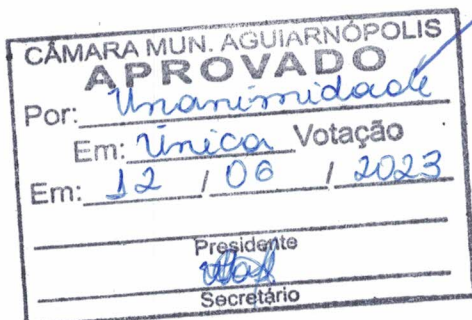 CÂMARA MUN. AGUIARNÓPOLIS
APROVADO
Por: Unanimidade
Em: Única Votação
Em: 12 / 06 / 2023
Presidente
Secretário